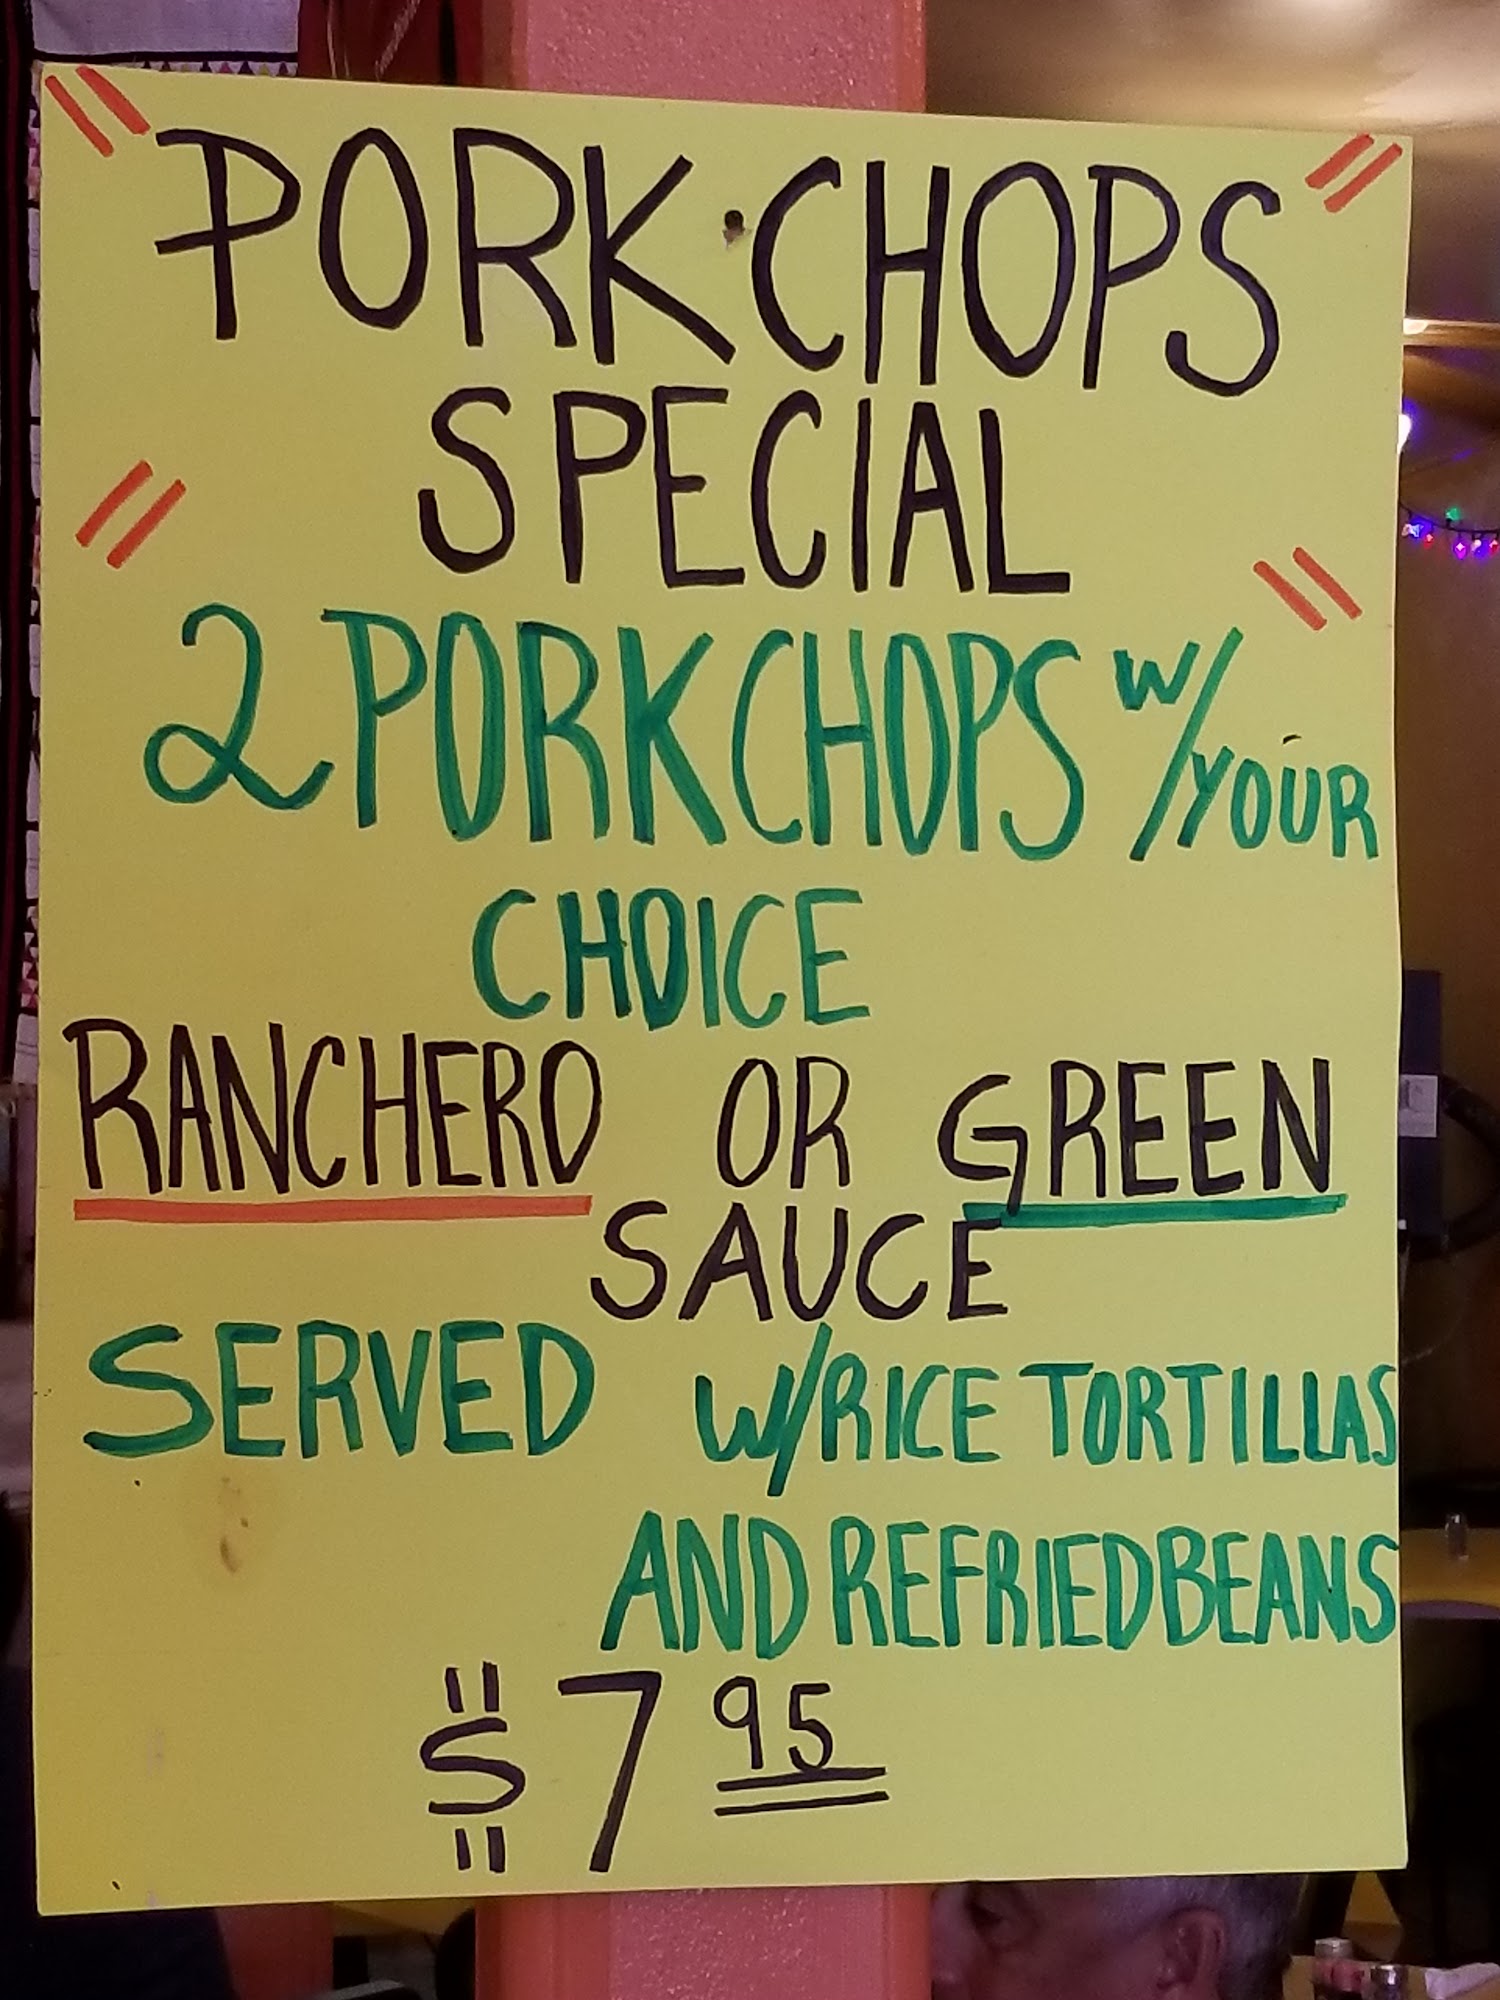 PORK CHOPS
SPECIAL
2 PORKCHOPS W/YOUR
CHOICE
RANCHERO OR GREEN
SAUCE
SERVED W/RICE TORTILLAS
AND REFRIED BEANS
$7 95